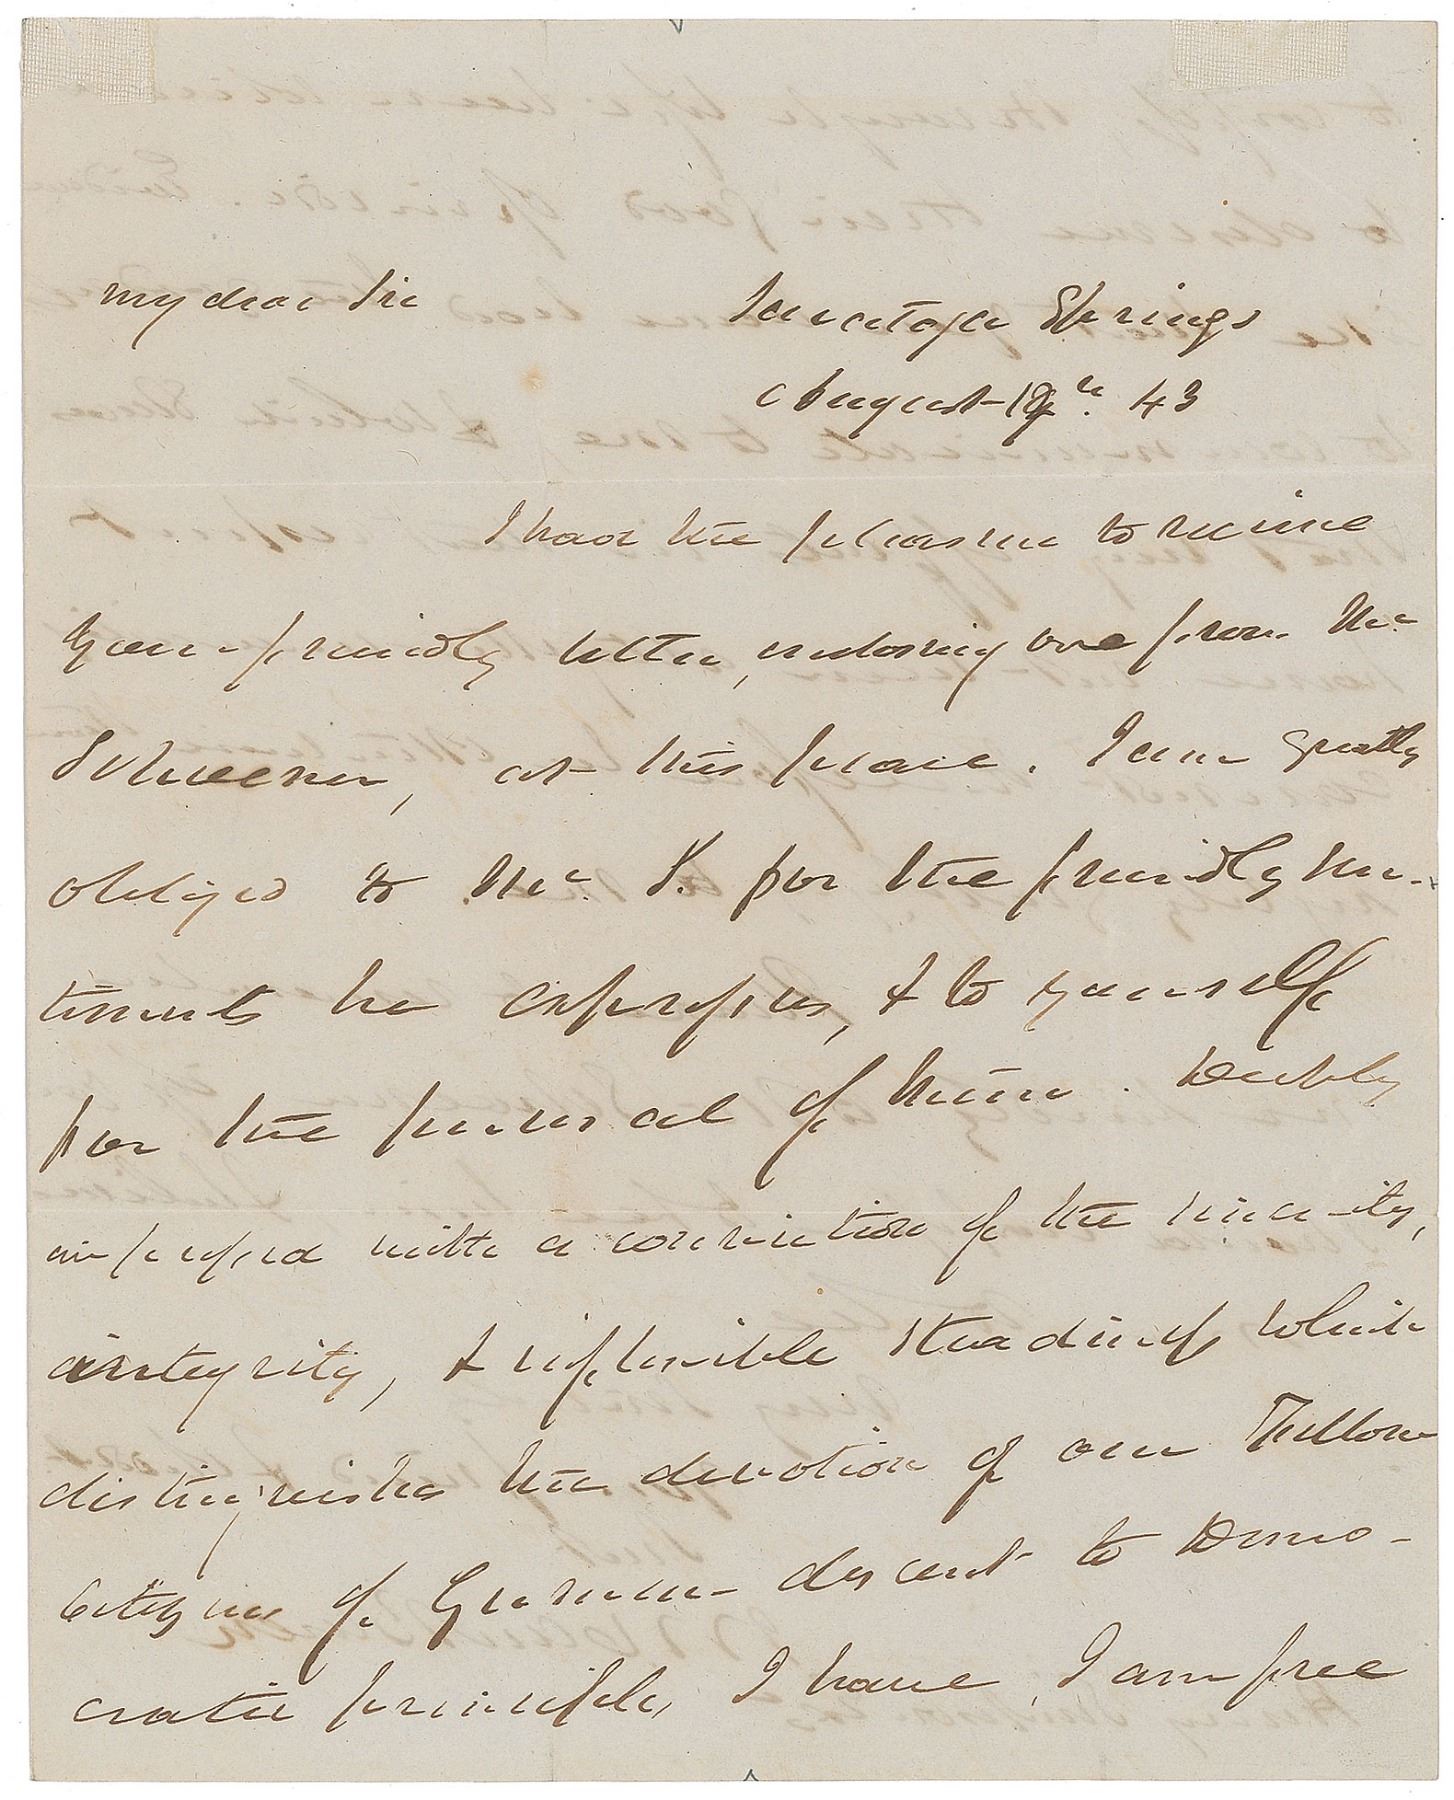 My dear Sir
Saratoga Springs
August 19th. 43
I had the pleasure to receive
your friendly letter, enclosing one from Mr
at this place. I am greatly
obliged to Mr S. for the friendly sen-
timents he expresses, & to yourself
for the perusal of them. Deeply
impressed with a conviction of the sincerity,
integrity, & inflexible steadiness which
distinguishes the devotion of our Fellow
Citizens of German descent to Demo-
cratic principles, I have, I am free